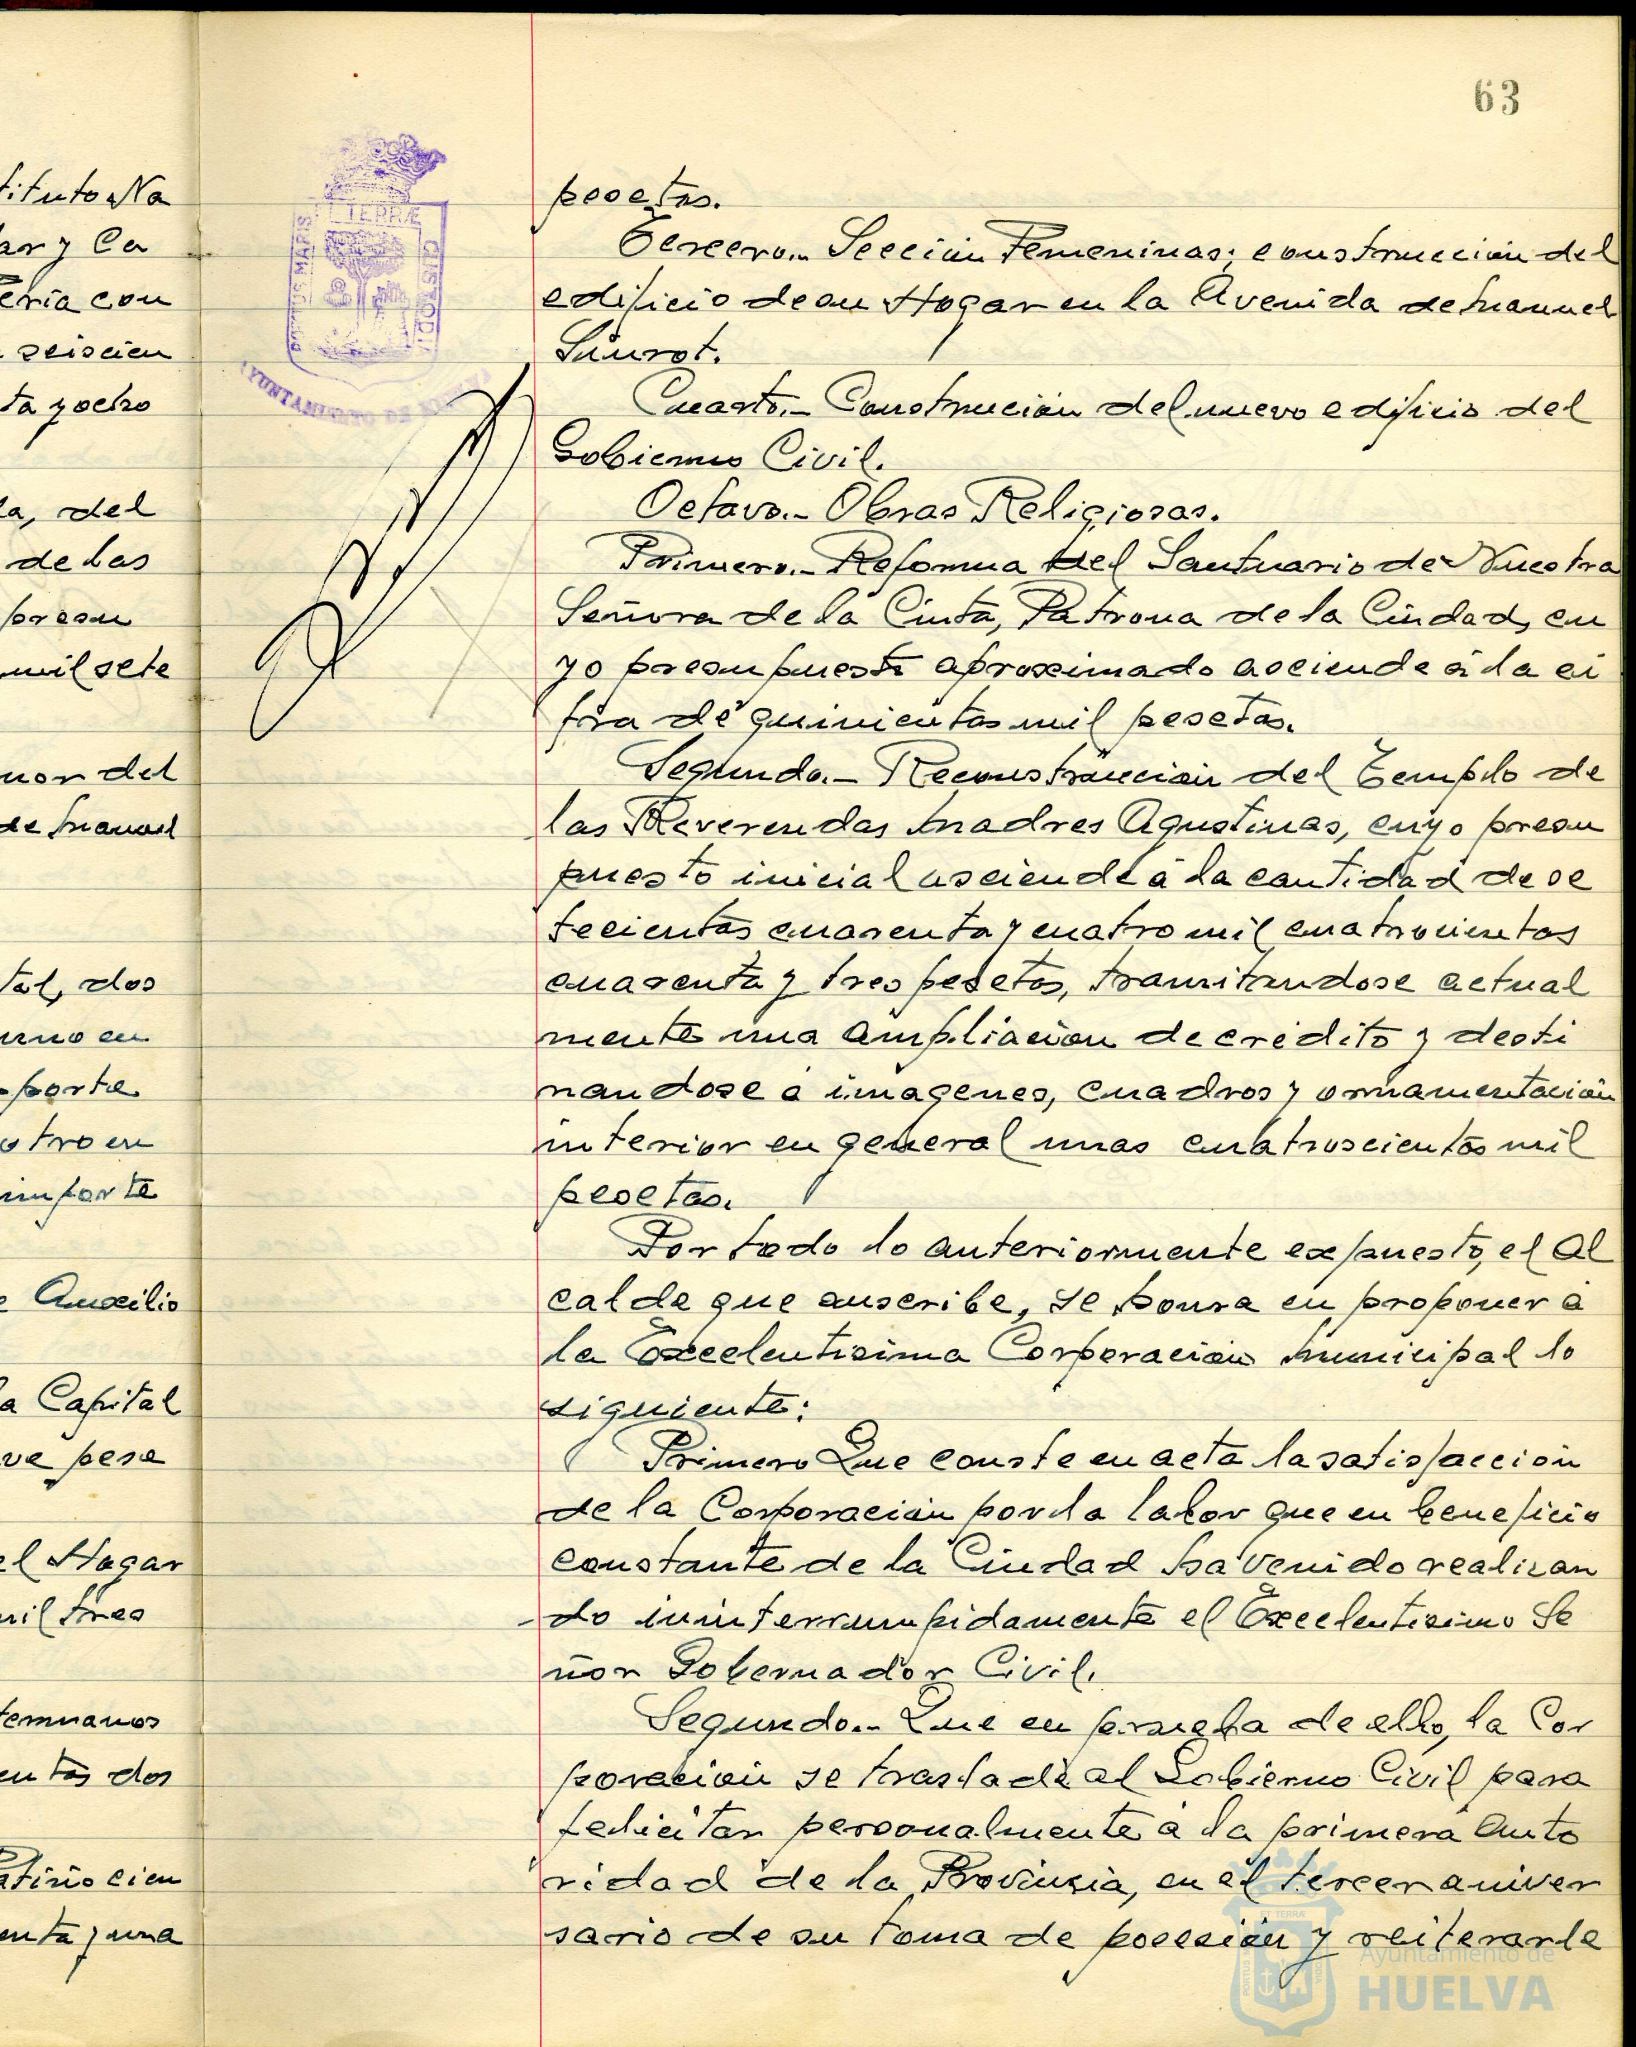 63
tituto Na
ar y Ca
ería con
seiscien
ta y ocho
la, del
de las
presu
mil sete
nor del
de Manuel
tal, dos
urno en
porta
otro en
importe
e Auxilio
a Capital
ve pese
el Hogar
mil tres
termanos
entos dos
atiño cien
enta y una
PORTUS MARIS
ET TERRÆ
CUSTODIA
AYUNTAMIENTO DE HUELVA
pesetas.
Tercero.- Sección Femeninas; construcción del
edificio de su Hogar en la Avenida de Manuel
Siurot.
Cuarto.- Construción del nuevo edificio del
Gobierno Civil.
Octavo.- Obras Religiosas.
Primero.- Reforma del Santuario de Nuestra
Señora de la Cinta, Patrona de la Ciudad, cu
yo presupuesto aproximado asciende á la ci
fra de quinientas mil pesetas.
Segundo.- Reconstrucción del Templo de
las Reverendas Madres Agustinas, cuyo presu
puesto inicial asciende á la cantidad de se
tecientas cuarenta y cuatro mil cuatrocientas
cuarenta y tres pesetas, tramitandose actual
mente una ampliación de crédito y desti
nandose á imagenes, cuadros y ornamentación
interior en general unas cuatroscientas mil
pesetas.
Por todo lo anteriormente expuesto, el Al
calde que suscribe, se honra en proponer á
la Excelentisima Corporación Municipal lo
siguiente:
Primero Que conste en acta la satisfacción
de la Corporación por la labor que en beneficio
constante de la Ciudad ha venido realizan
do ininterrumpidamente el Excelentisimo Se
ñor Gobernador Civil.
Segundo.- Que en prueba de ello, la Cor
poración se traslade al Gobierno Civil para
felicitar personalmente á la primera Auto
ridad de la Provincia, en el tercer aniver
sario de su toma de posesión y reiterarle
Ayuntamiento de
HUELVA